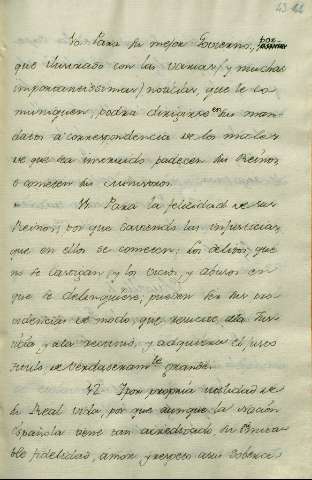 43 42
Para su mejor Govierno, por-
que ilustrado con las varias, y muchas
importantes noticias, que le co-
muniquen, podra dirigirse en sus man-
datos a correspondencia de los males
de que ha padecen sus Reinos,
o cometen sus Ministros.
Para la felicidad de sus
Reinos; por que sabiendo las injusticias,
que en ellos se cometen: los delitos, que
no se castigan, y los vicios, y abusos en
que se delinquiere, pueden ser sus pro-
videncias de modo, que
y adquiera el
titulo de verdaderamte grande.
42 Por propria utilidad de
su Real vida, por que aunque la Nacion
Española tiene tan acreditado, su
ble fidelidad, amor, y respeto a sus Sobera-